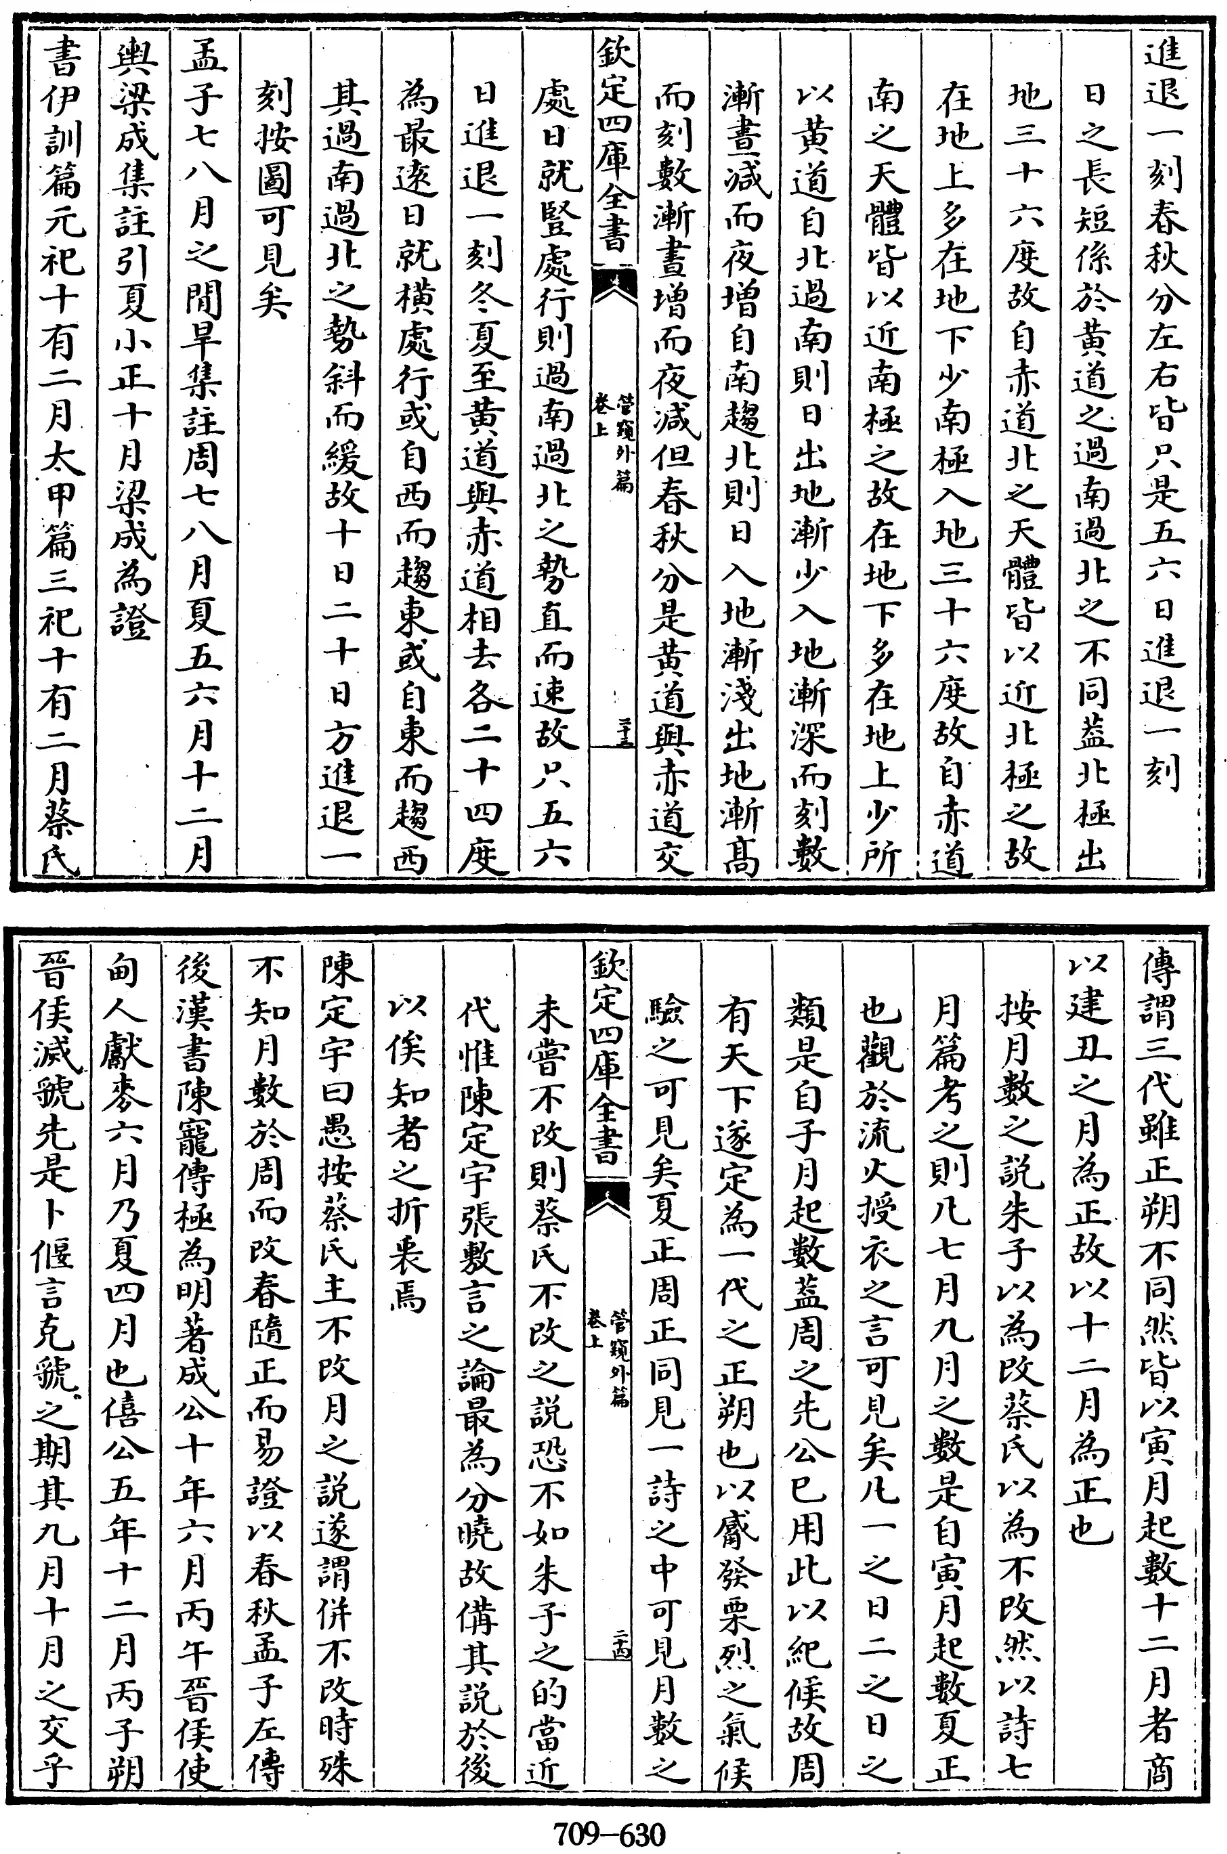 進退一刻春秋分左右皆只是五六日進退一刻
日之長短係於黄道之過南過北之不同葢北極出
地三十六度故自赤道北之天體皆以近北極之故
在地上多在地下少南極入地三十六度故自赤道
南之天體皆以近南極之故在地下多在地上少所
以黄道自北過南則日出地漸少入地漸深而刻數
漸晝减而夜增自南趨北則日入地漸淺出地漸髙
而刻數漸晝增而夜减但春秋分是黄道與赤道交
欽定四庫全書
管窺外篇
卷上
二十三
處日就豎處行則過南過北之勢直而速故只五六
日進退一刻冬夏至黄道與赤道相去各二十四度
為最逺日就横處行或自西而趨東或自東而趨西
其過南過北之勢斜而緩故十日二十日方進退一
刻按圖可見矣
孟子七八月之間旱集註周七八月夏五六月十二月
輿梁成集註引夏小正十月梁成為證
書伊訓篇元祀十有二月太甲篇三祀十有二月蔡氏
傳謂三代雖正朔不同然皆以寅月起數十二月者商
以建丑之月為正故以十二月為正也
按月數之説朱子以為改蔡氏以為不改然以詩七
月篇考之則凡七月九月之數是自寅月起數夏正
也觀於流火授衣之言可見矣凡一之日二之日之
類是自子月起數葢周之先公已用此以紀候故周
有天下遂定為一代之正朔也以觱發栗烈之氣候
驗之可見矣夏正周正同見一詩之中可見月數之
欽定四庫全書
管窺外篇
卷上
二十四
未嘗不改則蔡氏不改之説恐不如朱子之的當近
代惟陳定宇張敷言之論最為分曉故備其説於後
以俟知者之折衷焉
陳定宇曰愚按蔡氏主不改月之説遂謂併不改時殊
不知月數於周而改春隨正而易證以春秋孟子左傳
後漢書陳寵傳極為明著成公十年六月丙午晉侯使
甸人獻麥六月乃夏四月也僖公五年十二月丙子朔
晉侯滅虢先是卜偃言克虢之期其九月十月之交乎
709-630